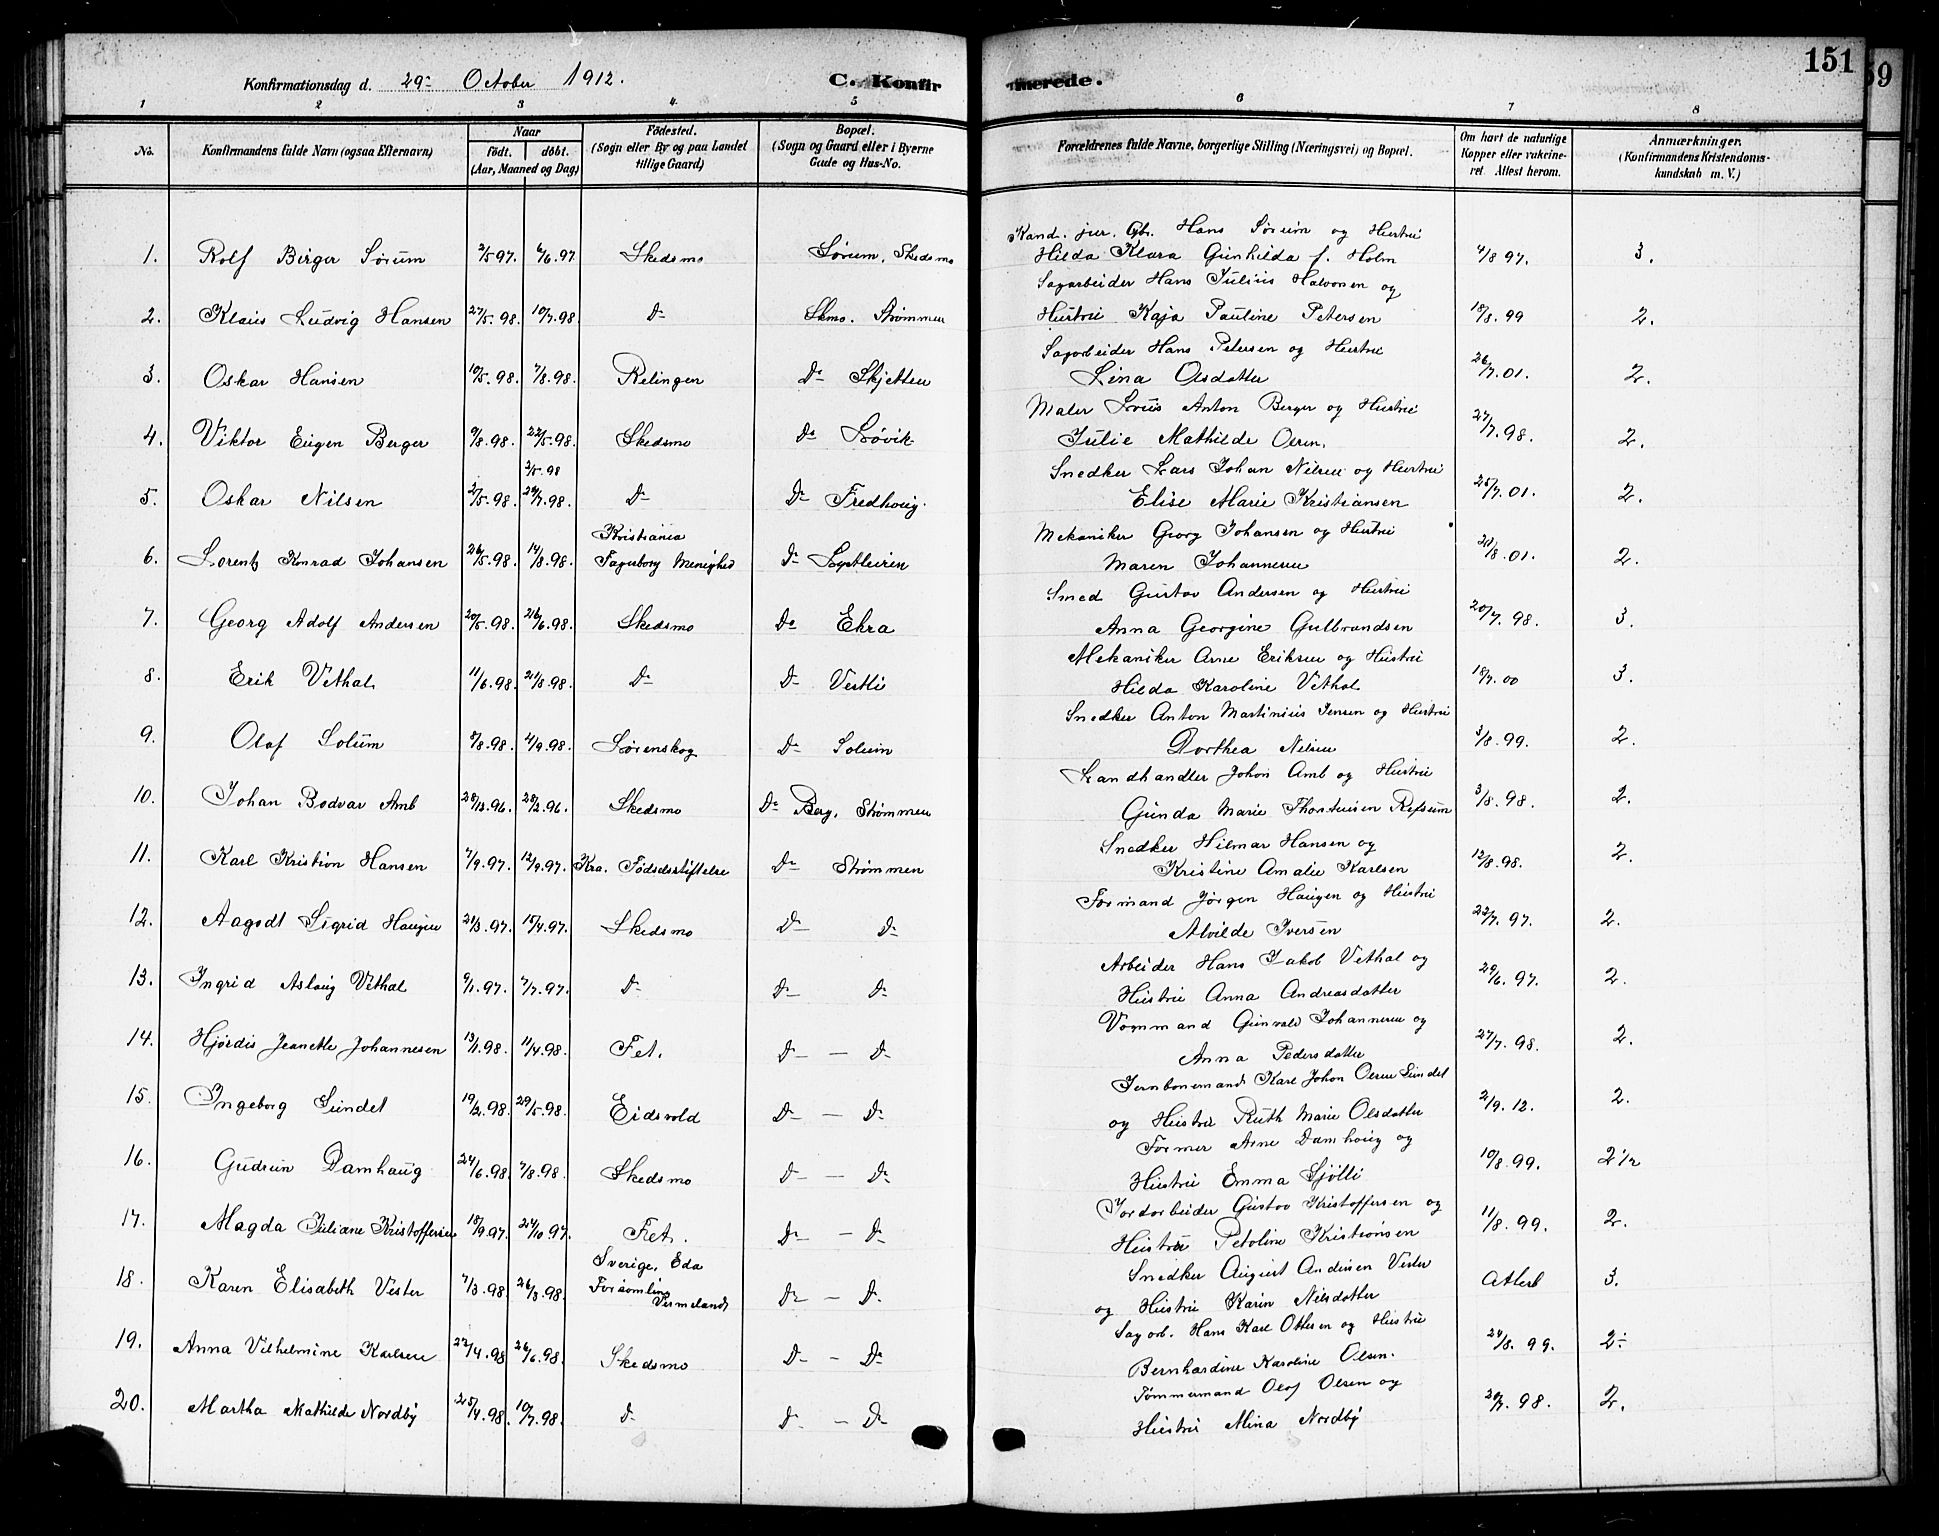 151
59
Konfirmationsdag d. 29- October 1912.
C. Konfirmerede.
1 2 3 4. 5 6 7 8
No. Konfirmandens fulde Navn (ogsaa Efternavn) Naar født. døbt. (Aar, Maaned og Dag) Fødested. (Sogn eller By og paa Landet tillige Gaard) Bopæl. (Sogn og Gaard eller i Byerne Gade og Hus-No. Forældrenes fulde Navne, borgerlige Stilling (Næringsvei) og Bopæl. Om havt de naturlige Kopper eller vakcineret. Attest herom. Anmærkninger. (Konfirmandens Kristendomskundskab m. V.)
Kand. jur. Gbr. Hans Sørum og Hustru
1. Rolf Birger Sørum 2/5 97. 6/6. 97 Skedsmo Sørum, Skedsmo Hilda Klara Gunhilda f. Holm 4/8 97. 3.
Sagarbeider Hans Julius Halvorsen og
2. Klaus Ludvig Hansen 27/5. 98. 10/7. 98. D- Skmo. Strømmen Hustru Kaja Pauline Petersen 18/8. 99 2.
Sagarbeider Hans Petersen og Hustru
3. Oskar Hansen 10/5. 98. 7/8. 98. Relingen D- Skjetten Lina Olsdatter 26/7. 01. 2.
Maler Louis Anton Berger og Hustru
4. Viktor Eugen Berger 9/8. 98. 22/5. 98. Skedsmo Do Løvik Julie Mathilde Olsen. 27/7. 98. 2.
2/5. 98
Snedker Lars Johan Nilsen og Hustru
5. Oskar Nilsen 2/5. 98. 24/7. 98. D- D- Fredhoug. Elise Marie Kristiansen 25/7. 01. 2.
Kristiania
Mekaniker Georg Johansen og Hustru
6. Lorentz Konrad Johansen 26/5. 98. 14/8. 98. Fagerborg Menighed D- Maren Johannesen 21/8. 01. 2.
Smed Gustav Andersen og Hustru
7. Georg Adolf Andersen 20/5. 98. 26/6. 98. Skedsmo Do Ekra Anna Georgine Gulbrandsen 20/7. 98. 3.
Mekaniker Arne Eriksen og Hustru
8. Erik Vethal 11/6. 98. 21/8. 98. D- D- Vestli Hilda Karoline Vethal 18/7. 00 3.
Snedker Anton Martinius Jensen og Hustru
9. Olaf Solum 8/8. 98. 4/9. 98. Lørenskog D- Solum Dorthea Nilsen 3/8. 99. 2.
Landhandler Johan Amb og Hustru
10. Johan Bodvar Amb 28/12. 96. Skedsmo Do Berg, Strømmen Gunda Marie Thorstensen Refsum 3/8. 98. 2.
Snedker Hilmar Hansen og
11. Karl Kristian Hansen 7/9. 97. 12/9. 97. Kra. Fødselsstiftelse D- Strømmen Kristine Amalie Karlsen 12/8. 98. 2.
Formand Jørgen Haugen og Hustru
12. Aagodt Sigrid Haugen 21/3. 97. 15/4. 97. Skedsmo D- D- Alvilde Iversen 22/7. 97. 2.
Arbeider Hans Jakob Vethal og
13. Ingrid Aslaug Vethal 9/1. 97. 7/7. 97. D- D- D- Hustru Anna Andreasdatter 29/6. 97. 2.
Vognmand Gunvald Johannesen og
14. Hjørdis Jeanette Johannesen 13/1. 98. 11/4. 98. Fet. D- - D- Anna Pedersdatter 27/7. 98. 2.
Jernbanemand Karl Johan Olsen Sundet
15. Ingeborg Sundet 19/2. 98. 29/5. 98. Eidsvold D- - D- og Hustru Ruth Marie Olsdatter 2/9. 12. 2.
Former Arne Damhoug og
16. Gudrun Damhaug 24/6. 98. 7/8. 98. Skedsmo D- - D- Hustru Emma Sjølli 10/8. 99. 2 1/2
Jordarbeider Gustav Kristoffersen og
17. Magda Juliane Kristoffersen 18/9 97. 24/10 97. Fet. D- - D- Hustru Petoline Kristiansen 11/8. 99. 2.
Sverige, Eda
Snedker August Andersen Vester
18. Karen Elisabeth Vester 7/3. 98. 26/3. 98. Forsamling Vermeland D- - D- og Hustru Karin Nilsdatter Attest 3.
Sagarb. Hans Karl Ottersen og Hustru
19. Anna Vilhelmine Karlsen 22/4. 98. 26/6. 98. Skedsmo D- - Do Bernhardine Karoline Olsen. 24/8. 99. 2÷
Tømmermand Olaf Olsen og
20. Martha Mathilde Nordby 25/4. 98. 10/7. 98. D- D- - D- Hustru Mina Nordby 20/7. 98. 2.